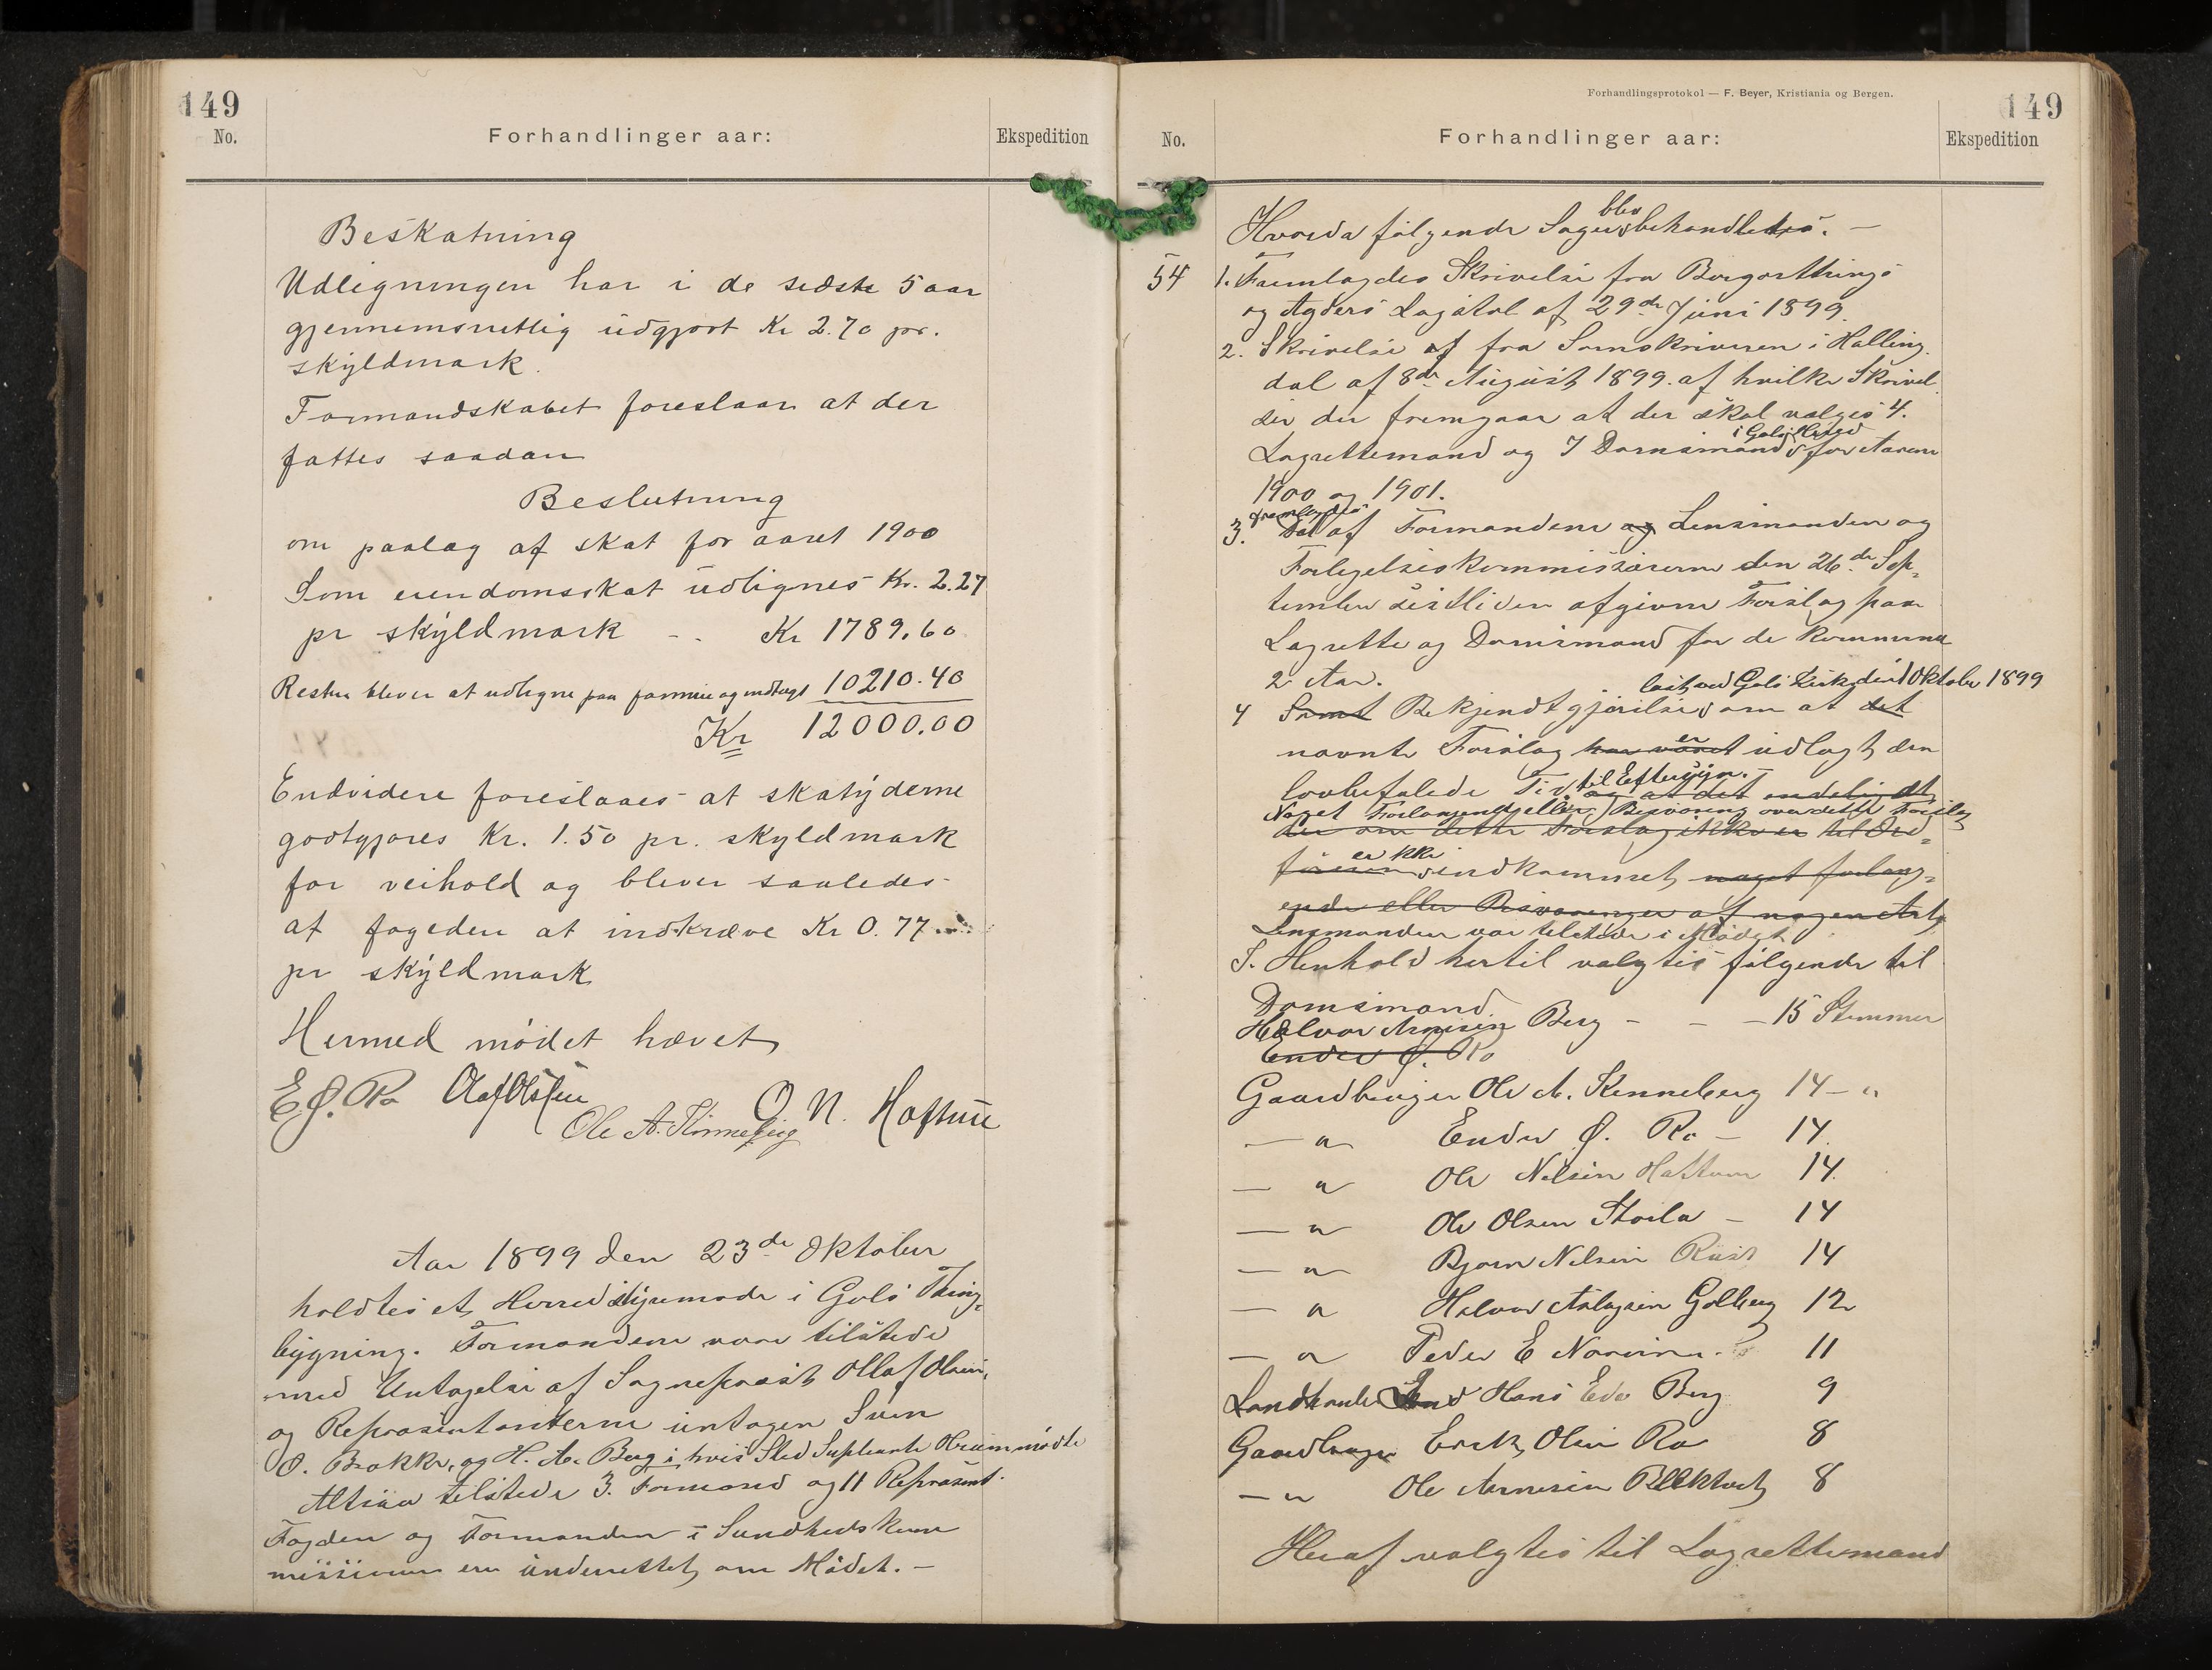 149
No.
Forhandlinger aar:
Ekspedition
Beskatning
Udligningen har i de sidste 5 aar
gjennemsnitlig udgjort Kr 2.70 pr.
skyldmark.
Formandskabet foreslaar at der
fattes saadan
Beslutning
om paalag af skat for aaret 1900
Som eiendomsskat udlignes Kr. 2.27
pr skyldmark - - Kr 1789.60
Resten bliver at udligne paa formue og indtægt 10210.40
Kr 12000.00
Endvidere foreslaaes at skatyderne
godtgjøres Kr. 1.50 pr. skyldmark
for veihold og bliver saaledes
af fogeden at indkræve Kr 0.77
pr skyldmark
Hermed mødet hævet
E Ø. Ro Olaf Olsen
Ole A. Kinneberg O. N. Haftun
Aar 1899 den 23de Oktober
holdtes et Herredstyremøde i Gols Thing-
bygning. Formændene var tilstede
med Untagelse af Sogneprest Ollaf Olsen,
og Repræsentanterne untagen Sven
O. Brakke, og H. A. Berg i hvis Sted Supleante mødte
Altsaa tilstede 3. Formænd og 11 Repræsent.
Fogden og Formanden i Sundhedskom
missionen ere underrettet om Mødet. —
Forhandlingsprotokol — F. Beyer, Kristiania og Bergen.
149
No.
Forhandlinger aar:
Ekspedition
blev
Hvorda følgende Sager behandledes. —
54 1. Fremlagdes Skrivelse fra Borgarthings
og Agders Lagstol af 29de Juni 1899.
2. Skrivelse af fra Sorenskriveren i Halling
dal af 8de August 1899. af hvilke Skrivel
ser der fremgaar at der skal vælges 4.
i Gols Herred
Lagrettemænd og 7 Domsmænd for Aarene
1900 og 1901.
fremlagdes
3. Det af Formændene og Lensmanden og
Forligelseskommissærerne den 26de Sep-
tember sidstleden afgivne Forslag paa
Lagrette og Domsmænd for de kommende
2 Aar.
læst ved Gols Kirke den 1 Oktober 1899
4 Samt Bekjendtgjørelse om at det
er
nævnte Forslag har været udlagt den
til Eftersyn. —
lovbefalede Tid. og at det endelig at
Noget Forlangende eller Besværing over dette Forslag
der om dette Forslag ikke er til Ord-
er ikke
føreren indkommet, noget forlang-
ende eller Besværinger af nogen Art,
Lensmanden var tilstede i Mødet
I. Henhold hertil valgtes følgende til
Domsmænd.
Halvor Arnesen Berg - - - 15 Stemmer
Ender Ø. Ro
Gaardbruger Ole A. Kinneberg 14 — "
— " Ender Ø. Ro — 14.
— " Ole Nilsen Haftun 14.
— " Ole Olsen Storla — 14
— " Bjørn Nilsen Rust 14
— " Halvor Aslagsen Golberg 12
— " Peder E 11
Landhandler Hans Edv Berg 9
Gaardbruger Erik Olsen Ro 8
— " Ole Arnesen 8
Heraf valgtes til Lagrettemænd